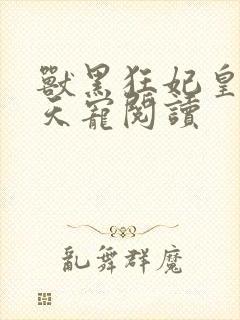 獸黑狂妃皇
天寵閱讀
亂舞群魔